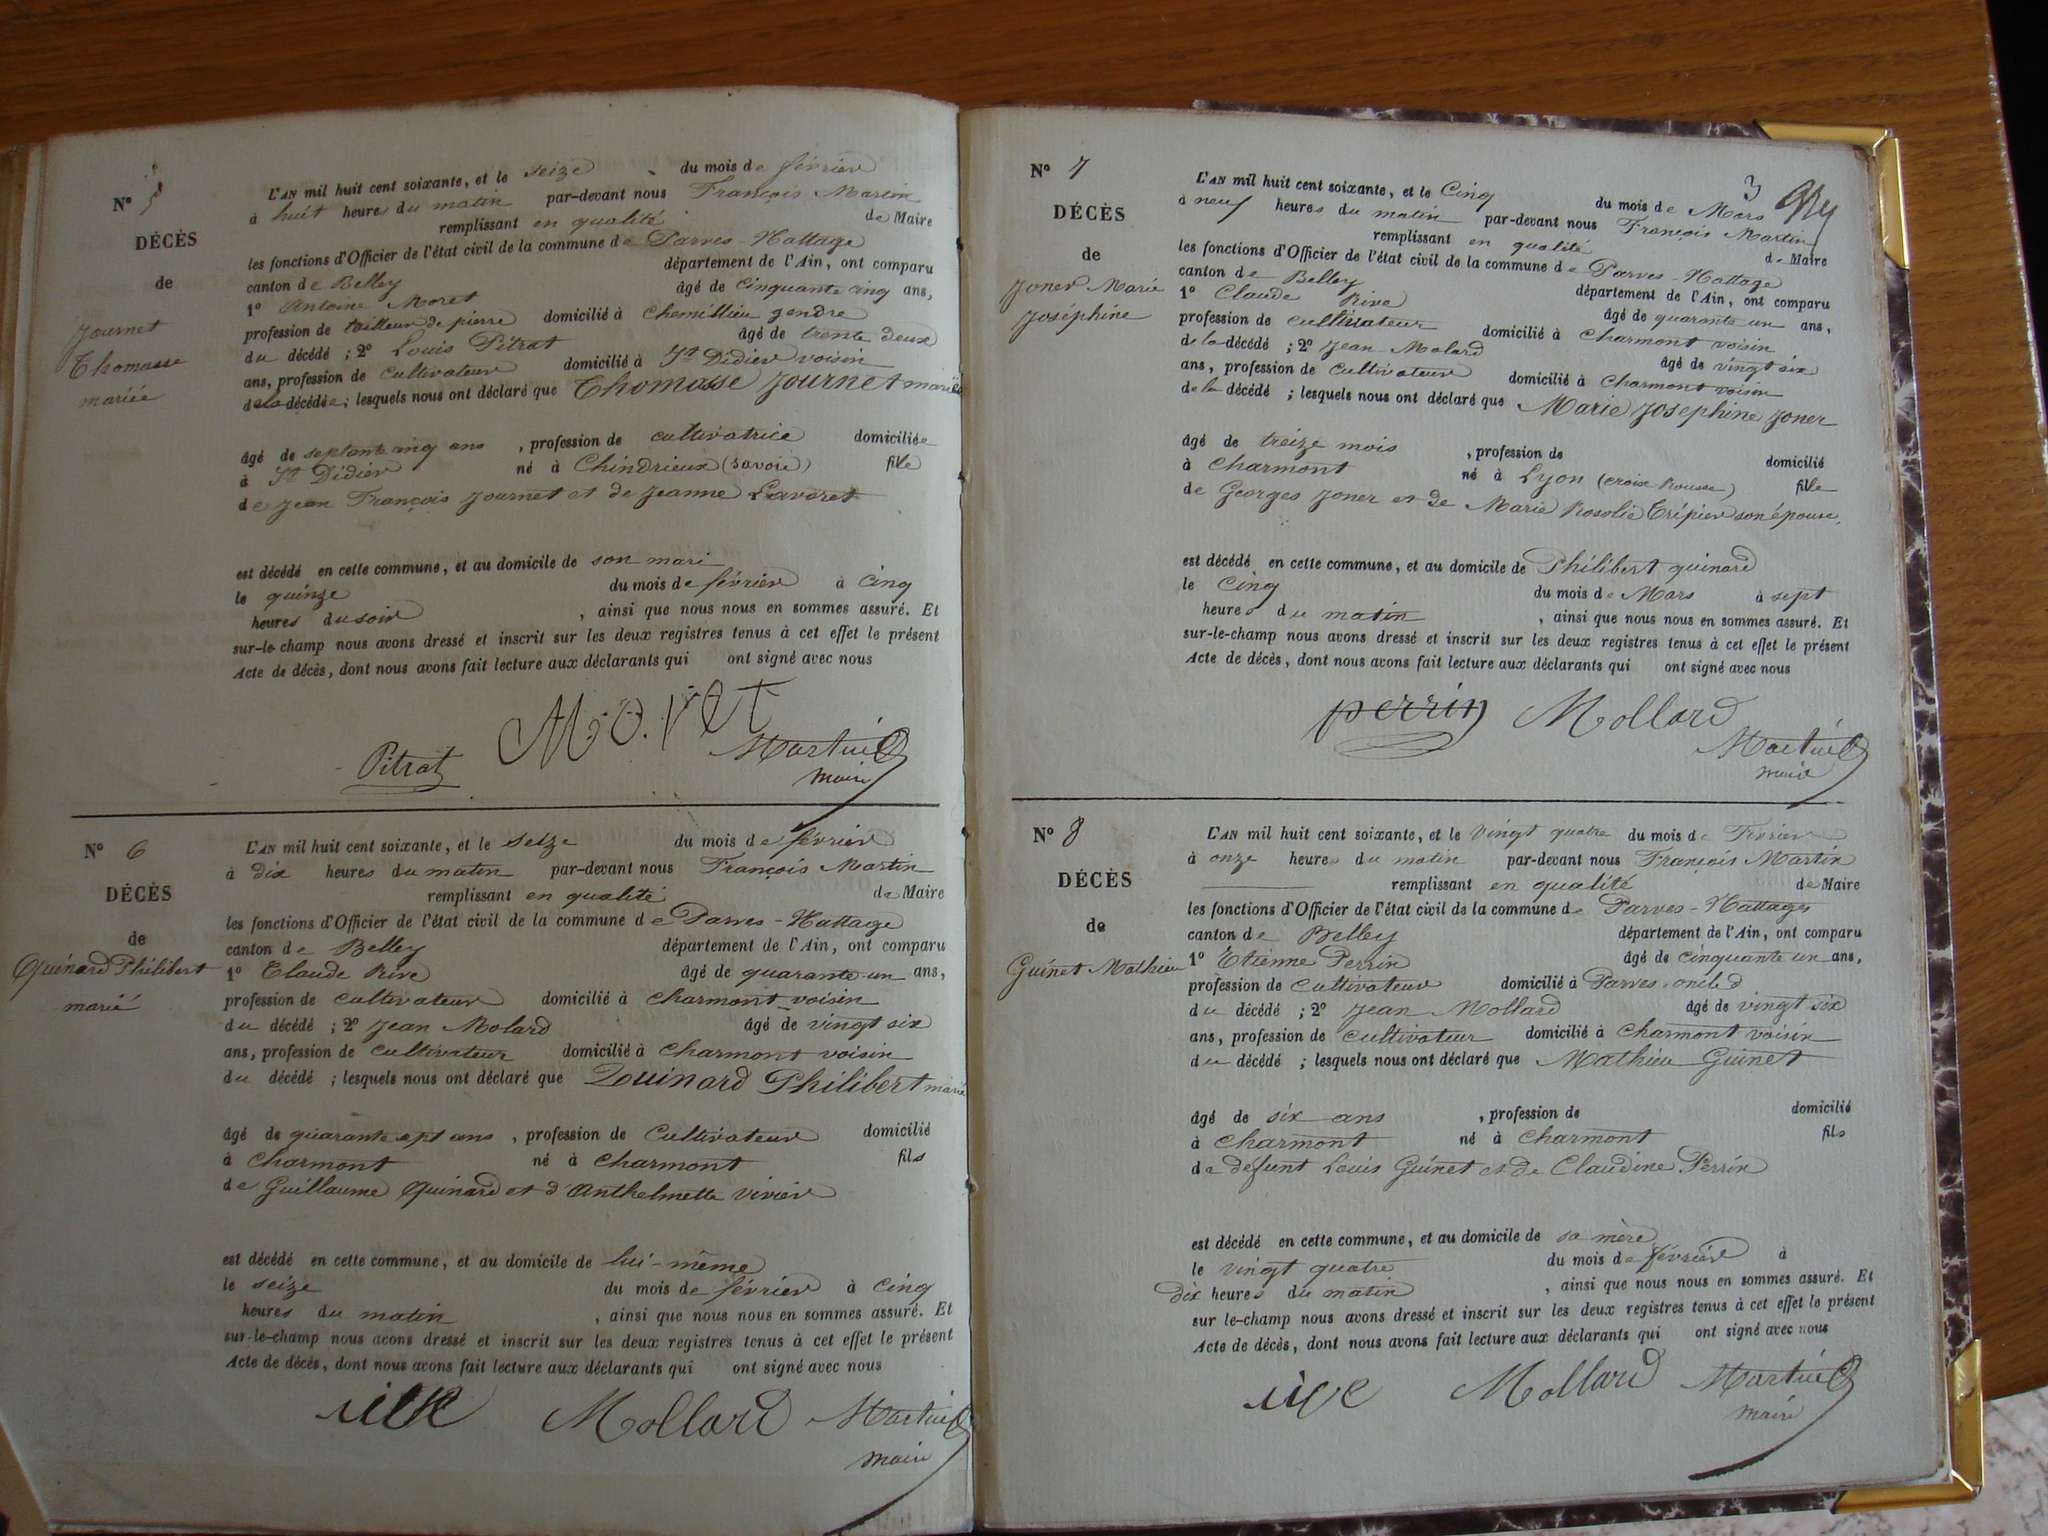 Nº 5
DÉCÈS
de
Journet
Thomasse
mariée
L'AN mil huit cent soixante, et le seize du mois de février
à huit heures du matin par-devant nous François Martin
remplissant en qualité de Maire
les fonctions d'Officier de l'état civil de la commune de Parves-Nattage
canton de Belley département de l'Ain, ont comparu
1º Antoine Moret âgé de cinquante cinq ans,
profession de tailleur de pierre domicilié à Chemillieu gendre
du décédé ; 2º Louis Pitrat âgé de trente deux
ans, profession de cultivateur domicilié à St Didier voisin
de la décédée ; lesquels nous ont déclaré que Thomasse Journet mariée
âgé de septante cinq ans , profession de cultivatrice domiciliée
à St Didier né à Chindrieux (Savoie) fille
de Jean François Journet et de Jeanne Lavoret
est décédé en cette commune, et au domicile de son mari
le quinze du mois de février à cinq
heures du soir , ainsi que nous nous en sommes assuré. Et
sur-le-champ nous avons dressé et inscrit sur les deux registres tenus à cet effet le présent
Acte de décès, dont nous avons fait lecture aux déclarants qui ont signé avec nous
Pitrat Moret Martin
maire
Nº 6
DÉCÈS
de
Quinard Philibert
marié
L'AN mil huit cent soixante, et le seize du mois de février
à dix heures du matin par-devant nous François Martin
remplissant en qualité de Maire
les fonctions d'Officier de l'état civil de la commune de Parves-Nattage
canton de Belley département de l'Ain, ont comparu
1º Claude Rive âgé de quarante-un ans,
profession de cultivateur domicilié à Charmont voisin
du décédé ; 2º Jean Molard âgé de vingt six
ans, profession de cultivateur domicilié à Charmont voisin
du décédé ; lesquels nous ont déclaré que Quinard Philibert marié
âgé de quarante sept ans , profession de Cultivateur domicilié
à Charmont né à Charmont fils
de Guillaume Quinard et d'Anthelmette Vivier
est décédé en cette commune, et au domicile de lui-même
le seize du mois de février à cinq
heures du matin , ainsi que nous nous en sommes assuré. Et
sur-le-champ nous avons dressé et inscrit sur les deux registres tenus à cet effet le présent
Acte de décès, dont nous avons fait lecture aux déclarants qui ont signé avec nous
rive Mollard Martin
maire
3
Nº 7
DÉCÈS
de
Joner Marie
Joséphine
L'AN mil huit cent soixante, et le Cinq du mois de Mars
à neuf heures du matin par-devant nous François Martin
remplissant en qualité de Maire
les fonctions d'Officier de l'état civil de la commune de Parves-Nattage
canton de Belley département de l'Ain, ont comparu
1º Claude Rive âgé de quarante un ans,
profession de cultivateur domicilié à Charmont voisin
de la décédé ; 2º Jean Molard âgé de vingt six
ans, profession de cultivateur domicilié à Charmont voisin
de la décédé ; lesquels nous ont déclaré que Marie Josephine Joner
âgé de treize mois , profession de domicilié
à Charmont né à Lyon (croix Rousse) fille
de Georges Joner et de Marie Rosalie Trépier son épouse,
est décédé en cette commune, et au domicile de Philibert quinard
le Cinq du mois de Mars à sept
heures du matin , ainsi que nous nous en sommes assuré. Et
sur-le-champ nous avons dressé et inscrit sur les deux registres tenus à cet effet le présent
Acte de décès, dont nous avons fait lecture aux déclarants qui ont signé avec nous
perrin Mollard Martin
maire
Nº 8
DÉCÈS
de
Guinet Mathieu
L'AN mil huit cent soixante, et le vingt quatre du mois de Fevrier
à onze heures du matin par-devant nous François Martin
remplissant en qualité de Maire
les fonctions d'Officier de l'état civil de la commune de Parves-Nattages
canton de Belley département de l'Ain, ont comparu
1º Etienne Perrin âgé de cinquante un ans,
profession de cultivateur domicilié à Parves oncle
du décédé ; 2º Jean Mollard âgé de vingt six
ans, profession de cultivateur domicilié à Charmont voisin
du décédé ; lesquels nous ont déclaré que Mathieu Guinet
âgé de six ans , profession de domicilié
à Charmont né à Charmont fils
de défunt Louis Guinet et de Claudine Perrin
est décédé en cette commune, et au domicile de sa mère
le vingt quatre du mois de février à
dix heures du matin , ainsi que nous nous en sommes assuré. Et
sur le-champ nous avons dressé et inscrit sur les deux registres tenus à cet effet le présent
Acte de décès, dont nous avons fait lecture aux déclarants qui ont signé avec nous
rive Mollard Martin
maire